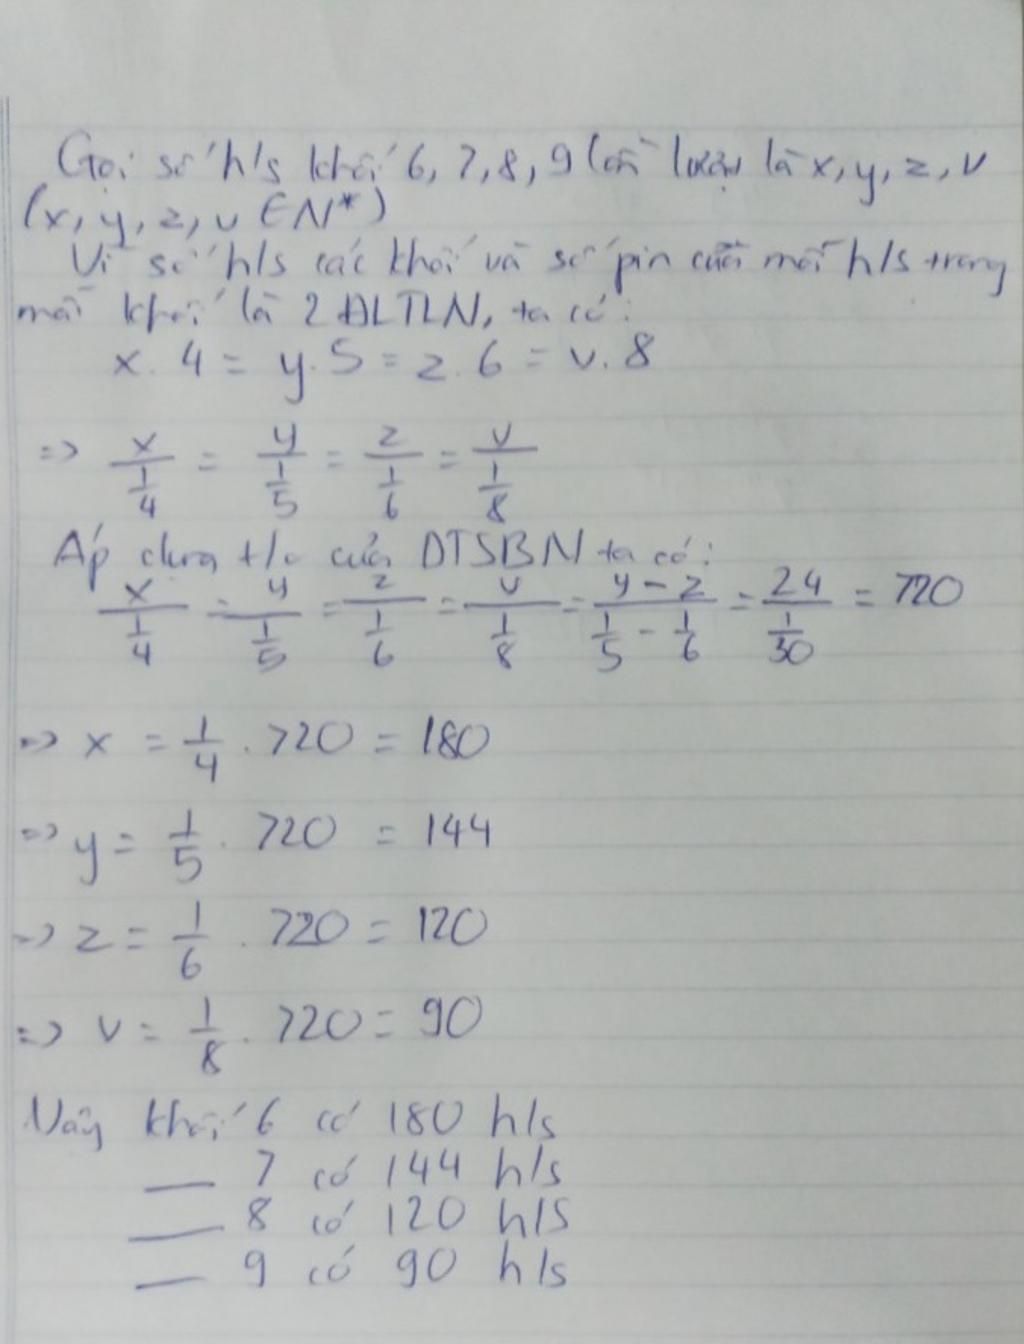 Gọi số h/s khối 6, 7, 8, 9 lần lượt là x, y, z, v
(x, y, z, v ∈ N*)
Vì số h/s các khối và số pin của mỗi h/s trong
mỗi khối là 2 ĐLTLN, ta có:
x . 4 = y . 5 = z . 6 = v . 8
=> x/(1/4) = y/(1/5) = z/(1/6) = v/(1/8)
Áp dụng t/c của DTSBN ta có:
x/(1/4) = y/(1/5) = z/(1/6) = v/(1/8) = (y - z)/(1/5 - 1/6) = 24/(1/30) = 720
=> x = 1/4 . 720 = 180
=> y = 1/5 . 720 = 144
=> z = 1/6 . 720 = 120
=> v = 1/8 . 720 = 90
Vậy khối 6 có 180 h/s
__ 7 có 144 h/s
__ 8 có 120 h/s
__ 9 có 90 h/s